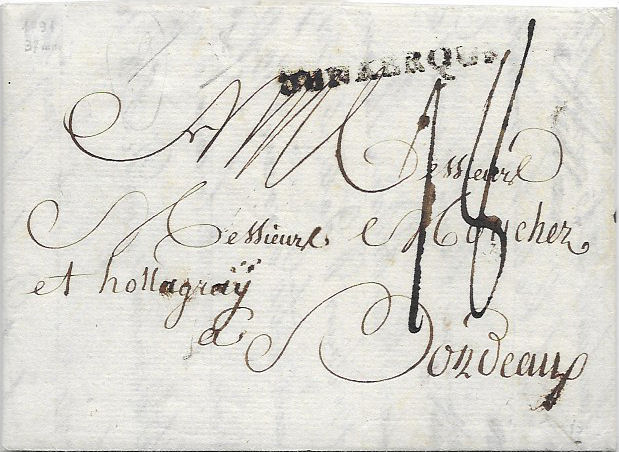 DUNKERQUE
18
A Messieurs
Messieurs Moucher
et hollagraÿ
a Bordeaux